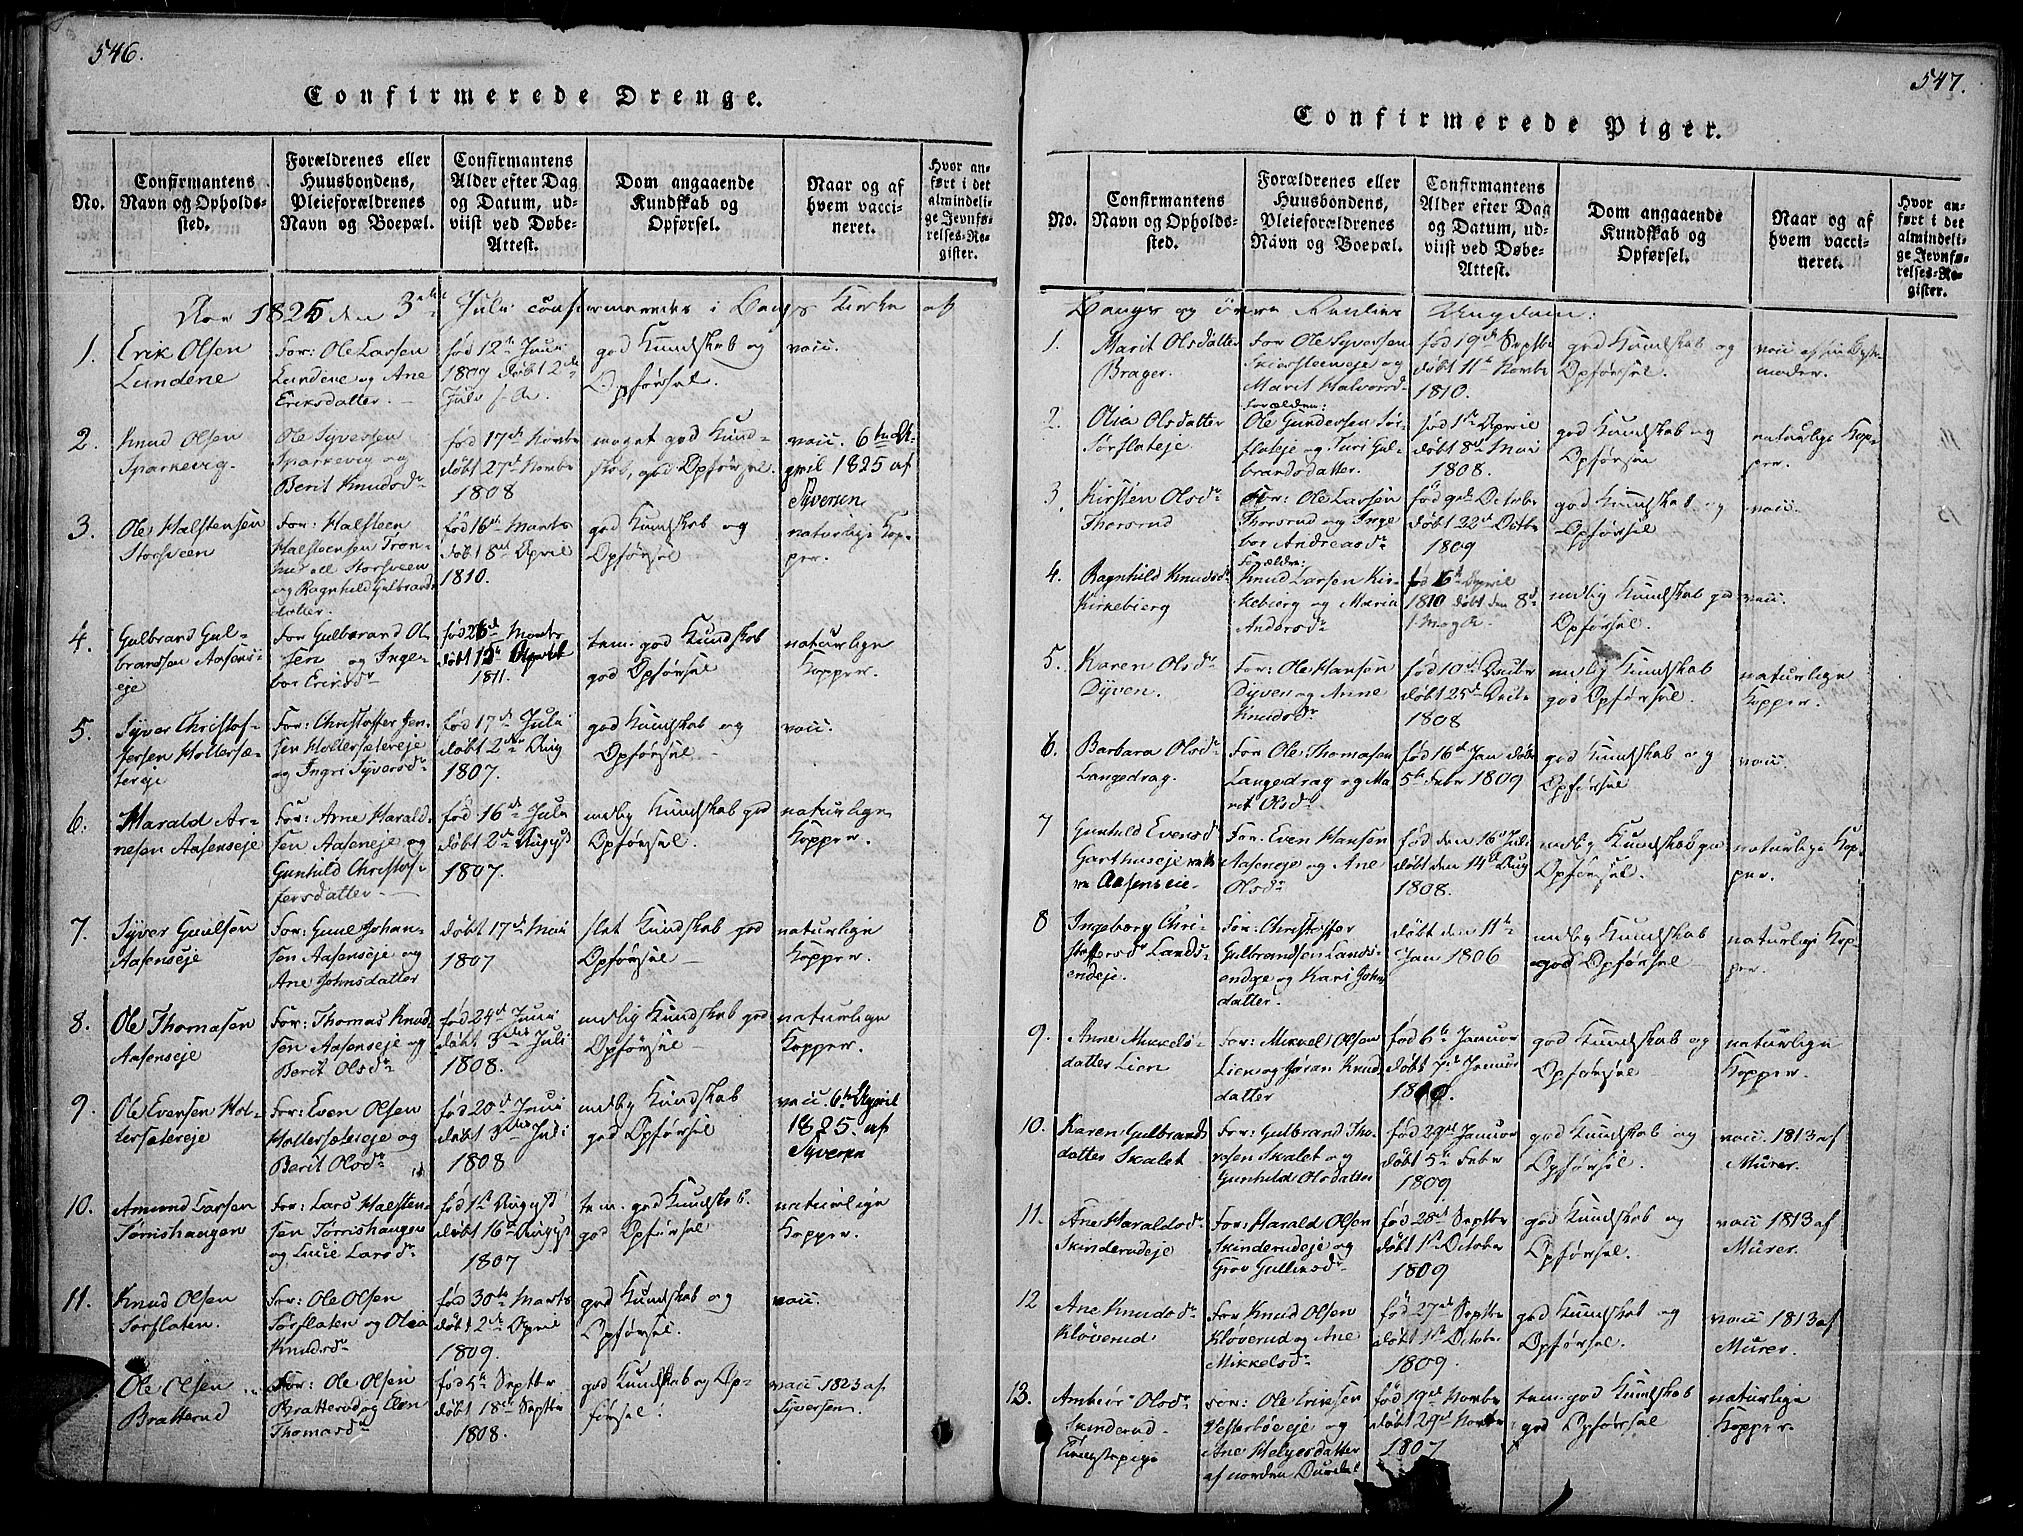 546.
Confirmerede Drenge.
No.
Confirmantens
Navn og Opholds-
sted.
Forældrenes eller
Huusbondens,
Pleieforældrenes
Navn og Boepæl.
Confirmantens
Alder efter Dag
og Datum, ud-
viist ved Døbe-
Attest.
Dom angaaende
Kundskab og
Opførsel.
Naar og af
hvem vacci-
neret.
Hvor an-
ført i det
almindeli-
ge Jevnfø-
relses-Re-
gister.
Aar 1825 den 3die Juli confirmeredes i Bangs Kirke af
1.
Erik Olsen
Lundene
For: Ole Larsen
Lundene og Ane
Eriksdatter.
fød 12te Juni
1809 døbt 2de
Juli s. A.
god Kundskab og
Opførsel.
vacc.
2.
Knud Olsen
Sparkevig.
Ole Syversen
Sparkevig og
Berit Knudsdr
fød 17de Novbr
døbt 27de Novbr
1808
meget god Kund-
skab, god Opførsel.
vacc. 6te A-
pril 1825 af
Syversen
3.
Ole Halstensen
Storsveen
For: Halsteen
Halsteensen Tron-
hus ell Storsveen
og Ragnhild Gulbrands
datter.
fød 16de Marts
døbt 8de April
1810.
god Kundskab og
Opførsel
naturlige Kop-
per.
4.
Gulbrand Gul-
brandsen Aasens-
eje
For Gulbrand Ol-
sen og Inge-
bor Eriksdr
fød 26de Marts
døbt 15de April
1811.
tem. god Kundskab
god Opførsel
naturlige
Kopper.
5.
Syver Christof-
fersen Hollersæ-
tereje
For: Christoffer Jen-
sen Hollersætereje
og Ingri Syversdr
fød 17de Juli
døbt 2den Aug
1807.
god Kundskab og
Opførsel
vacc.
6.
Harald Ar-
nesen Aasenseje
For: Arne Harald-
sen Aasenseje og
Gunhild Christof-
fersdatter
fød 16de Juli
døbt 2de August
1807.
mdlig Kundskab god
Opførsel.
naturlige
Kopper.
7.
Syver Guulsen
Aasenseje
For: Guul Johan-
sen Aasenseje og
Ane Johnsdatter
døbt 17de Mai
1807
slet Kundskab god
Opførsel
naturlige
Kopper.
8.
Ole Thomasen
Aasenseje
For: Thomas Knud-
sen Aasenseje og
Berit Olsdr
fød 24de Juni
døbt 3die Juli
1808.
mdlig Kundskab god
Opførsel
naturlige
Kopper.
9.
Ole Evensen Hol-
lersætereje
For: Even Olsen
Hollersætereje og
Berit Olsdr
fød 20de Juni
døbt 3die Juli
1808
mdlig Kundskab
god Opførsel
vacc. 6te April
1825. af
Syversen
10.
Amund Larsen
Tørrishaugen
For: Lars Halsten-
sen Tørrishaugen
og Lucie Larsdr
fød 1ste August
døbt 16de August
1807
tem. god Kundskab.
god Opførsel
naturlige
Kopper.
11.
Knud Olsen
Sørflaten.
For: Ole Olsen
Sørflaten og Olia
Knudsdr
fød 30te Marts
døbt 2de April
1809.
god Kundskab og
Opførsel.
vacc.
Ole Olsen
Bratterud
For: Ole Olsen
Bratterud og Elen
Thomasdr
fød 5te Septbr
døbt 18de Septbr
1808.
god Kundskab og Op-
førsel.
vacc 1823 af
Syversen.
547.
Confirmerede Piger.
No.
Confirmantens
Navn og Opholds-
sted.
Forældrenes eller
Huusbondens,
Pleieforældrenes
Navn og Boepæl.
Confirmantens
Alder efter Dag
og Datum, ud-
viist ved Døbe-
Attest.
Dom angaaende
Kundskab og
Opførsel.
Naar og af
hvem vacci-
neret.
Hvor an-
ført i det
almindeli-
ge Jevnfø-
relses-Re-
gister.
Bangs og Ungdom:
1.
Marit Olsdatter
Brager.
For Ole Syversen
Skiørsteeneje og
Marit Halvorsd
fød 19de Septbr
døbt 11te Novbr
1810.
god Kundskab og
Opførsel.
vacc af
moder.
2.
Olia Olsdatter
Sørflateje
Forælder:
Ole Gundersen Sør-
flateje og Turi Gul-
brandsdatter.
fød 1ste April
døbt 8de Mai
1808.
god Kundskab og
Opførsel
naturlige Kop-
per.
3
Kirsten Olsdr
Thorsrud
For: Ole Larsen
Thorsrud og Inge
bor Andreasdr
fød 9de October
døbt 22de Octbr
1809
god Kundskab og
Opførsel
vacc.
4.
Ragnhild Knudsdr
Kirkebierg
Forældre:
Knud Larsen Kir-
kebierg og Maria
Andersdr
fød 6te April
1810 døbt den 8d
god Kundskab god
Opførsel.
vacc.
5.
Karen Olsdr
Dyven.
For: Ole Hansen
Dyven og Anne
Knudsdr
fød 10de Decbr
døbt 25de Decbr
1808
mdlig Kundskab
god Opførsel.
naturlige
Kopper.
6.
Barbara Olsdr
Langedrag.
For Ole Thomasen
Langedrag og Ma
rit Olsdr
fød 16de Jan døbt
5te Febr 1809
god Kundskab og
Opførsel
vacc.
7
Gunhild Evensdr
Garthuseje
Aasenseie
For: Even Hansen
Aasenseje og Ane
Olsdr
fød den 16d Juli
døbt den 14de Aug
1808.
mdlig Kundskab god
Opførsel.
naturlige Kop-
per.
8
Ingeborg Chri-
stoffersdr Lands-
endeje.
For: Christoffer
Gulbrandsen Lands-
endeje og Kari John
datter.
døbt den 11te
Jan 1806
mdlig Kundskab
god Opførsel
naturlige Kop-
per.
9.
Anne Mikkels-
datter Lien
For: Mikkel Olsen
Lien og Jøran Knud
datter
fød 6te Januar
døbt 7de Januar
1810.
god Kundskab og
Opførsel
naturlige
Kopper.
10.
Karen Gulbrands
datter Skalet
For: Gulbrand Tho-
resen Skalet og
Gunhild Olsdatter
fød 29de Januar
døbt 5te Febr
1809
god Kundskab og
Opførsel.
vacc 1813 af
Murer.
11.
Ane Haraldsdr
Skinderudeje
For: Harald Olsen
Skinderudeje og
Grov Gulliksdr
fød 28de Septbr
døbt 1ste October
1809
god Kundskab og
Opførsel.
vacc 1813 af
Murer.
12
Ane Knudsdr
Kløverud
For Knud Olsen
Kløverud og Ane
Mikkelsdr
fød 27de Septbr
døbt 1ste October
1809.
god Kundskab og
Opførsel.
vacc 1813 af
Murer.
13.
Ambiør Olsdr
Skinderud
Tienestepige
For: Ole Eriksen
Vesterbøeje og
Ane Helgesdatter
af nordre Aurdal
fød 19de Novbr
døbt 29de Novbr
1807
tem. god Kundskab
god Opførsel
naturlige
Kopper.